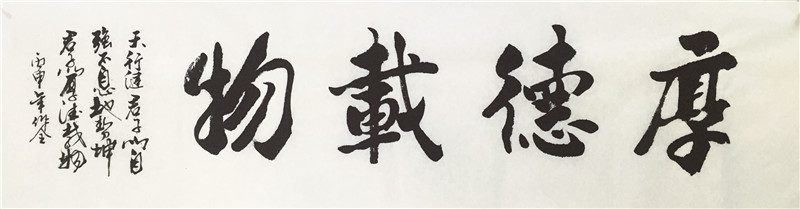 厚德載物
天行健君子以自
強不息地勢坤
君子以厚德載物
丙申年作全